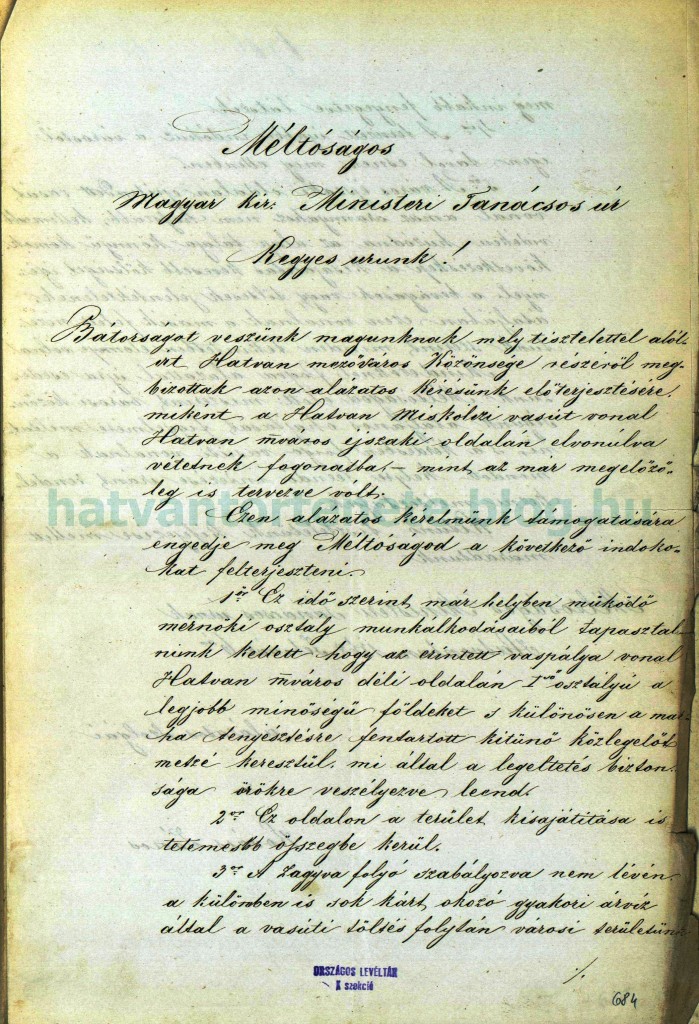 Méltóságos
Magyar kir: Ministeri Tanácsos úr
Kegyes urunk!
Bátorságot veszünk magunknak mély tisztelettel alól-
irt Hatvan mezőváros Közönsége részéről meg-
bizottak azon alázatos kérésünk előterjesztésére,
miként a Hatvan Miskólczi vasút vonal
Hatvan m̅város éjszaki oldalán elvonúlva
vétetnék foganatba, – mint az már megelőző-
leg is tervezve vólt.
hatvantortenete.blog.hu
Ezen alázatos kérelmünk támogatására
engedje meg Méltóságod a következő indoko-
kat felterjeszteni.
1ör Ez idő szerint már helyben működő
mérnöki osztály munkálkodásaiból tapasztal-
nunk kellett hogy az érintett vaspálya vonal
Hatvan m̅város déli oldalán Iső osztályú a
legjobb minőségű földeket s különösen a mar
ha tenyésztésre fentartott kitünő közlegelőt
metzé keresztül, mi által a legeltetés bizton-
sága örökre veszélyezve leend.
2or Ez oldalon a terület kisajátitása is
tetemesbb összegbe kerül.
3or A Zagyva folyó szabályozva nem lévén
a külömben is sok kárt okozó gyakori árvíz
által a vasúti töltés folytán városi területün
./.
ORSZÁGOS LEVÉLTÁR
K szekció
684